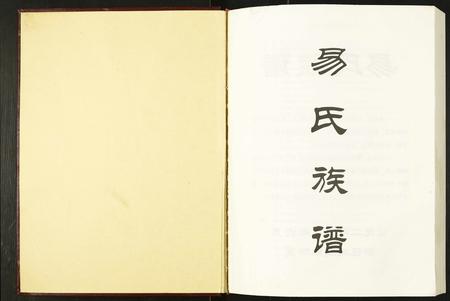 易氏族谱